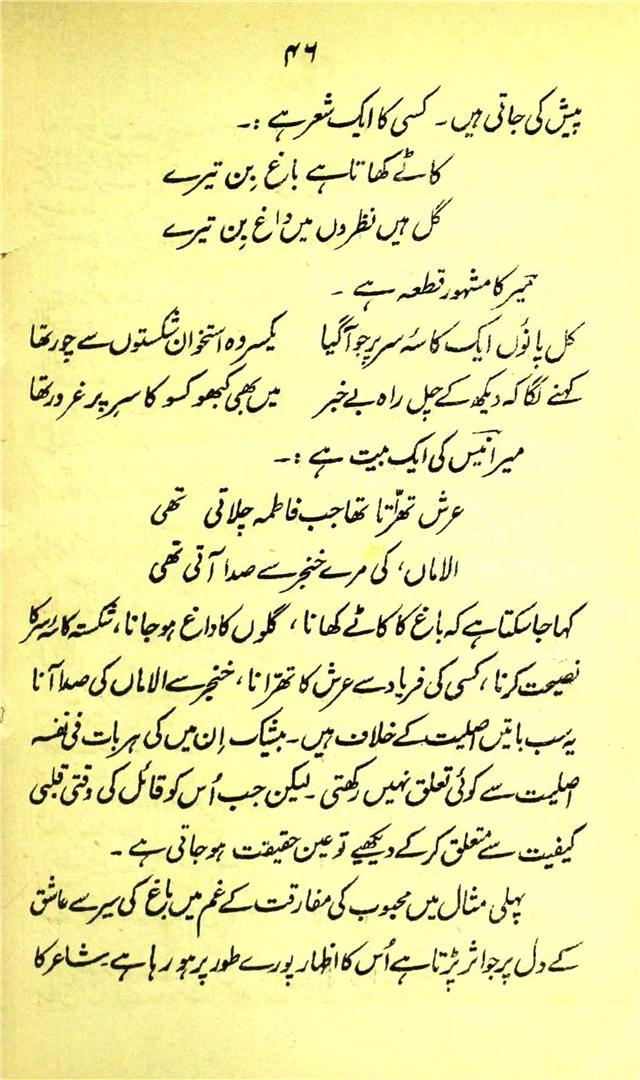 ۴۶
پیش کی جاتی ہیں۔ کسی کا ایک شعر ہے :۔
کاٹے کھاتا ہے باغ بِن تیرے
گل ہیں نظروں میں داغ بِن تیرے
میر کا مشہور قطعہ ہے ۔
کل پانوں ایک کاسۂ سر پر جو آگیا یکسر وہ استخوان شکستوں سے چور تھا
کہنے لگا کہ دیکھ کے چل راہ بے خبر میں بھی کبھو کسو کا سرِ پر غرور تھا
میر انیس کی ایک بیت ہے :۔
عرش تھرّاتا تھا جب فاطمہ چلاتی تھی
الاماں، کی مرے خنجر سے صدا آتی تھی
کہا جاسکتا ہے کہ باغ کا کاٹے کھانا، گلوں کا داغ ہو جانا، شکستہ کاسۂ سر کا
نصیحت کرنا، کسی کی فریاد سے عرش کا تھرانا، خنجر سے الاماں کی صدا آنا
یہ سب باتیں اصلیت کے خلاف ہیں۔ بیشک اِن میں کی ہر بات فی نفسہ
اصلیت سے کوئی تعلق نہیں رکھتی۔ لیکن جب اُس کو قائل کی وقتی قلبی
کیفیت سے متعلق کر کے دیکھیے تو عین حقیقت ہو جاتی ہے ۔
پہلی مثال میں محبوب کی مفارقت کے غم میں باغ کی سیر سے عاشق
کے دل پر جو اثر پڑتا ہے اُس کا اظہار پورے طور پر ہو رہا ہے۔ شاعر کا